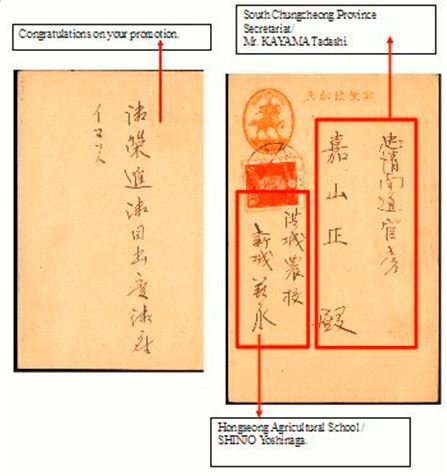 Congratulations on your promotion.
South Chungcheong Province
Secretariat/
Mr. KAYAMA Tadashi
御榮進御目出度御座
イマス
忠清南道官房
嘉山正 殿
洪城農校
新城義永
Hongseong Agricultural School /
SHINJO Yoshinaga.